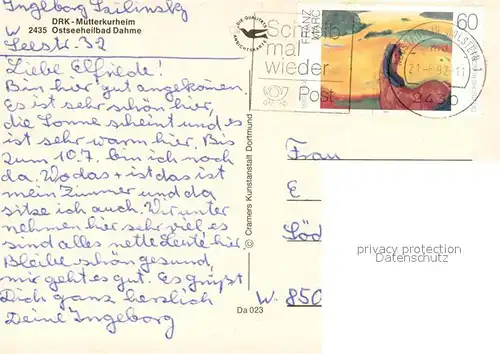 Ingeborg
DRK-Mutterkurheim
W 2435 Ostseeheilbad Dahme
Seestr. 32
Liebe Elfriede!
Bin hier gut angekommen.
Es ist sehr schön hier,
die Sonne scheint und es
ist sehr warm hier. Bis
zum 10.7. bin ich noch
da. Wo das + ist das ist
mein Zimmer und da
sitze ich auch. Wir unter
nehmen hier sehr viel, es
sind alles nette Leute hier
Bleibe schön gesund,
mir geht es gut. Es grüßt
Dich ganz herzlich
Deine Ingeborg
DIE QUALITÄTS
ANSICHTSKARTE
© Cramers Kunstanstalt Dortmund
Da 023
Schreib
mal
wieder
Post
FRANZ
MARC
60
2430
Frau
E
Löd
W-850
privacy protection
(DSGVO/GDPR)